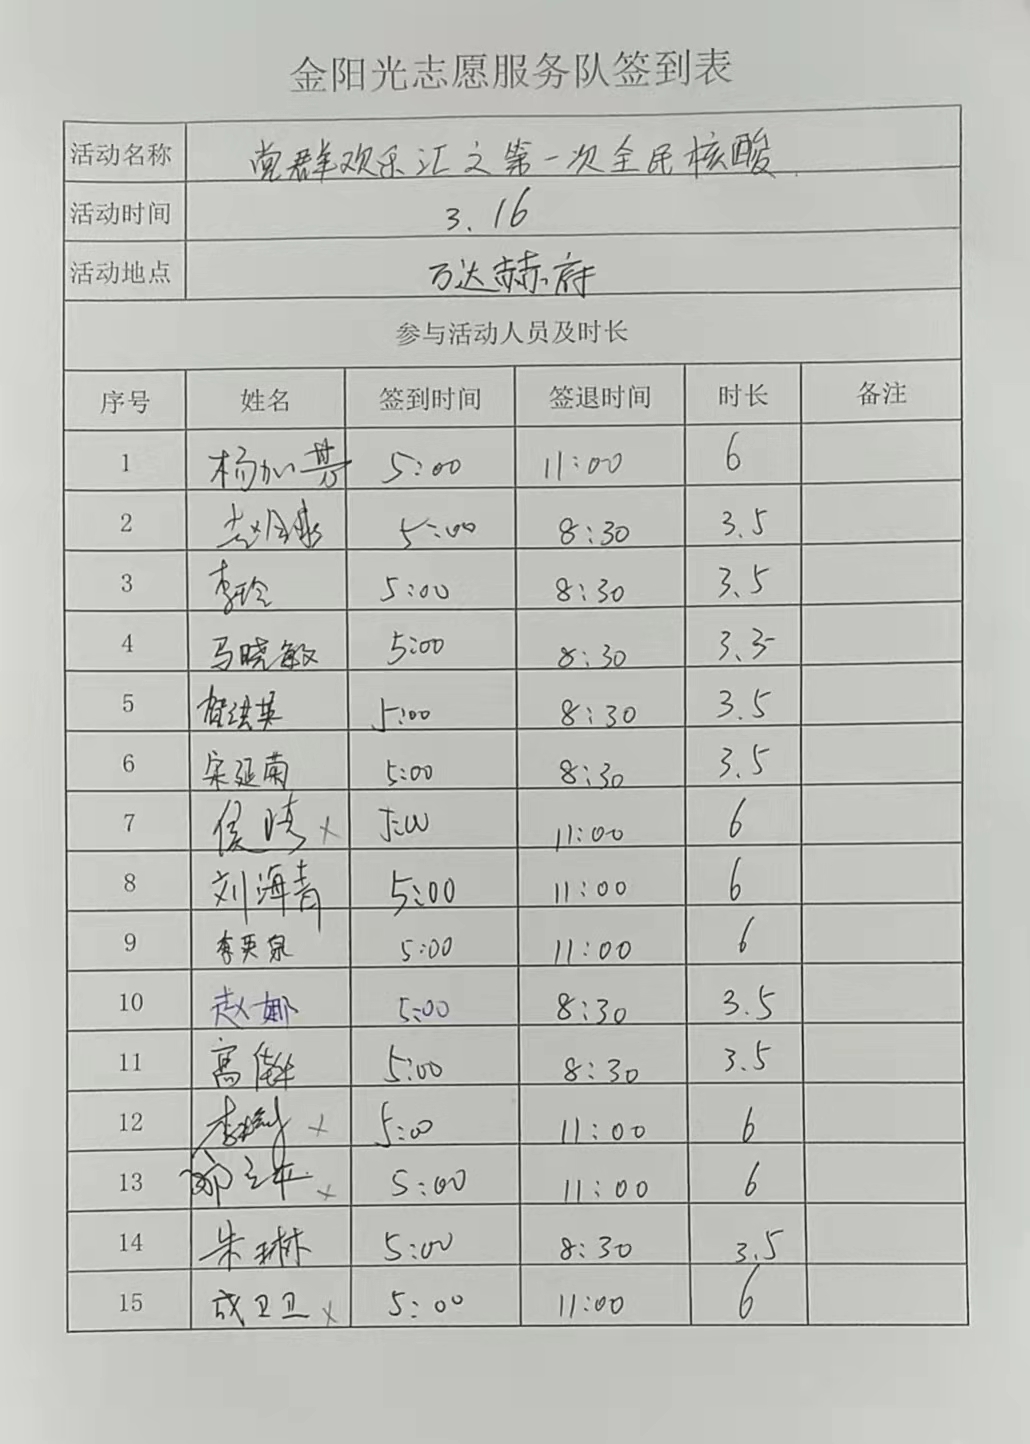 金阳光志愿服务队签到表
活动名称 党群欢乐汇之第一次全民核酸
活动时间 3.16
活动地点 万达赫府
参与活动人员及时长
序号 姓名 签到时间 签退时间 时长 备注
1 杨加 5:00 11:00 6
2 5:00 8:30 3.5
3 李玲 5:00 8:30 3.5
4 马晓敏 5:00 8:30 3.5
5 洪英 5:00 8:30 3.5
6 宋延菊 5:00 8:30 3.5
7 侯晓 x 5:00 11:00 6
8 刘海青 5:00 11:00 6
9 李英泉 5:00 11:00 6
10 赵娜 5:00 8:30 3.5
11 高 5:00 8:30 3.5
12 李 x 5:00 11:00 6
13 x 5:00 11:00 6
14 朱琳 5:00 8:30 3.5
15 成卫卫 x 5:00 11:00 6